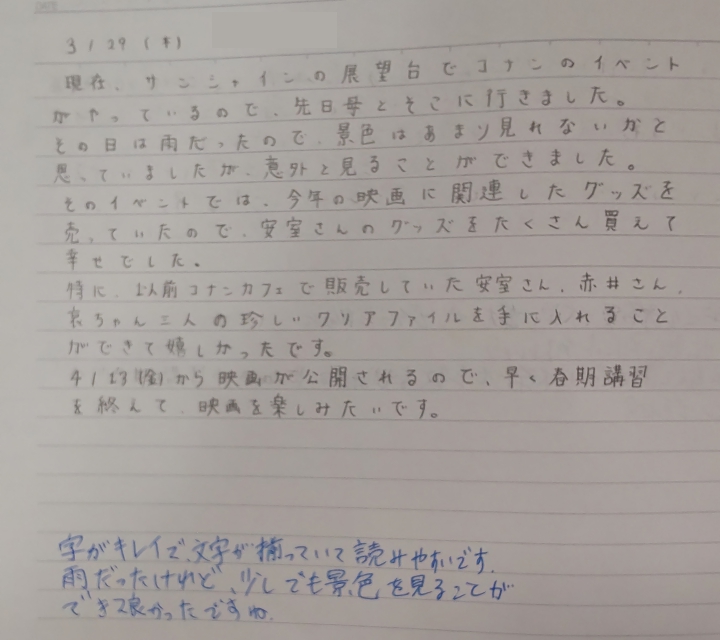 DATE
3/29(木)
現在、サンシャインの展望台でコナンのイベント
がやっているので、先日母とそこに行きました。
その日は雨だったので、景色はあまり見れないかと
思っていましたが、意外と見ることができました。
そのイベントでは、今年の映画に関連したグッズを
売っていたので、安室さんのグッズをたくさん買えて
幸せでした。
特に、以前コナンカフェで販売していた安室さん、赤井さん、
哀ちゃん三人の珍しいクリアファイルを手に入れること
ができて嬉しかったです。
4/13(金)から映画が公開されるので、早く春期講習
を終えて、映画を楽しみたいです。
字がキレイで、文字が揃っていて読みやすいです。
雨だったけれど、少しでも景色を見ることが
でき良かったですね。